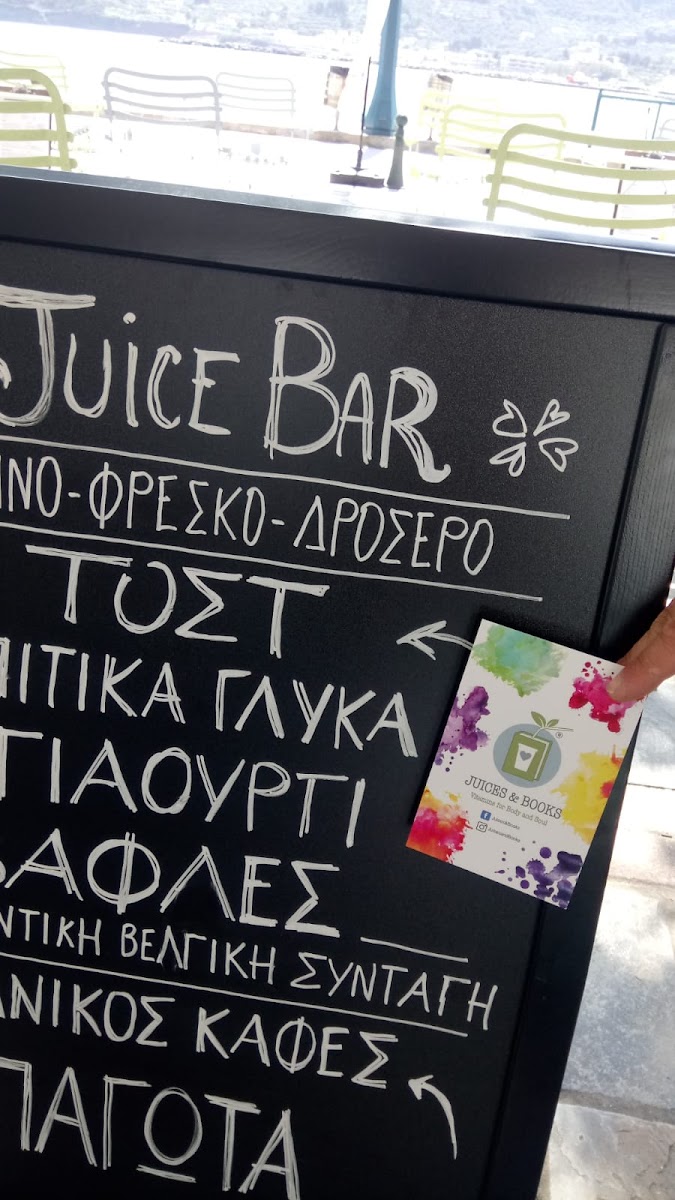 JUICE BAR
ΙΝΟ-ΦΡΕΣΚΟ-ΔΡΟΣΕΡΟ
ΤΟΣΤ
ΠΙΤΙΚΑ ΓΛΥΚΑ
ΓΙΑΟΥΡΤΙ
ΒΑΦΛΕΣ
ΝΤΙΚΗ ΒΕΛΓΙΚΗ ΣΥΝΤΑΓΗ
ΑΝΙΚΟΣ ΚΑΦΕΣ
ΠΑΓΩΤΑ
JUICES & BOOKS
Vitamins for Body and Soul